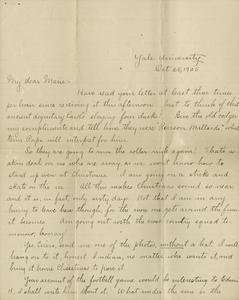 Yale University
Oct 25, 1905
My dear Mama:-
Have read your letter at least three times
per hour since receiving it this afternoon. Just to think of that
ancient dignitary Cards slaying four ducks! Give the old
my compliments and tell him they were
tem Papa will interpret for him.
So they are going to run the roller rink again! That's a
mean deal on we who are away, as we won't know how to
start up even at Christmas. I am going on a
skate on the All this makes Christmas sound so near,
and it is, in fact, only sixty days. Not that I am in any
hurry to have it come though, for the more one gets around the finer
it becomes. Am going out with the cross country squad to-
morrow, hooray!
Yes, send me one of the photos, without a hat. I will
hang on to it, honest Indian, no matter who wants it, and
bring it home Christmas to prove it.
Your account of the football game would be interesting to
H, I shall write him about it. What under the sun is the